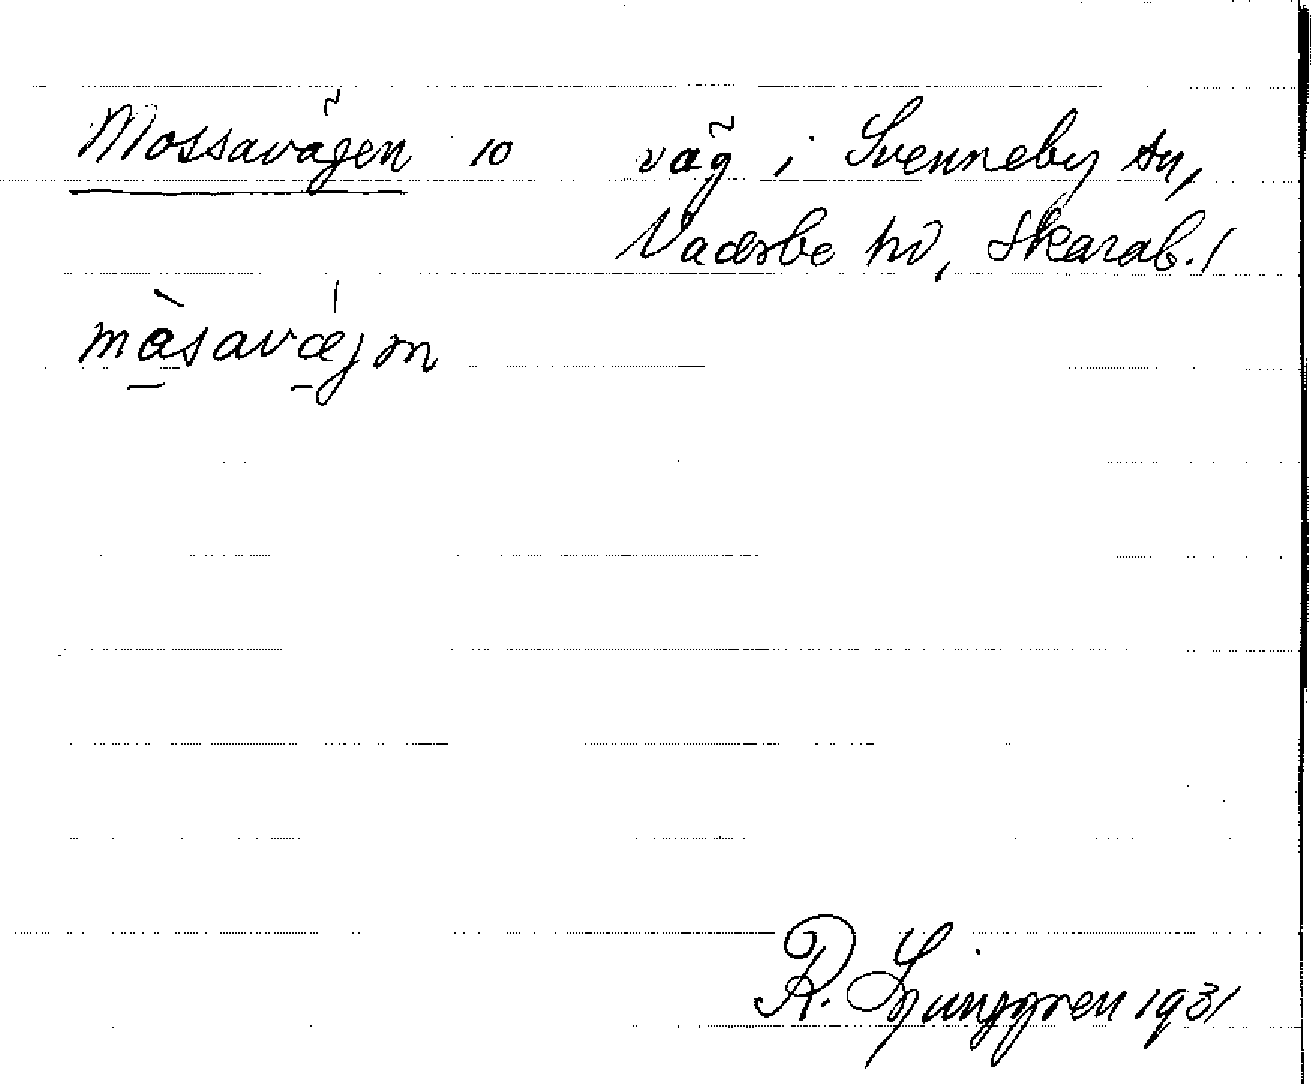 Mossavägen 10 väg i Svenneby sn,
Vadsbo hd, Skarab. l
måsavæ̀jən
R. Ljunggren 1931